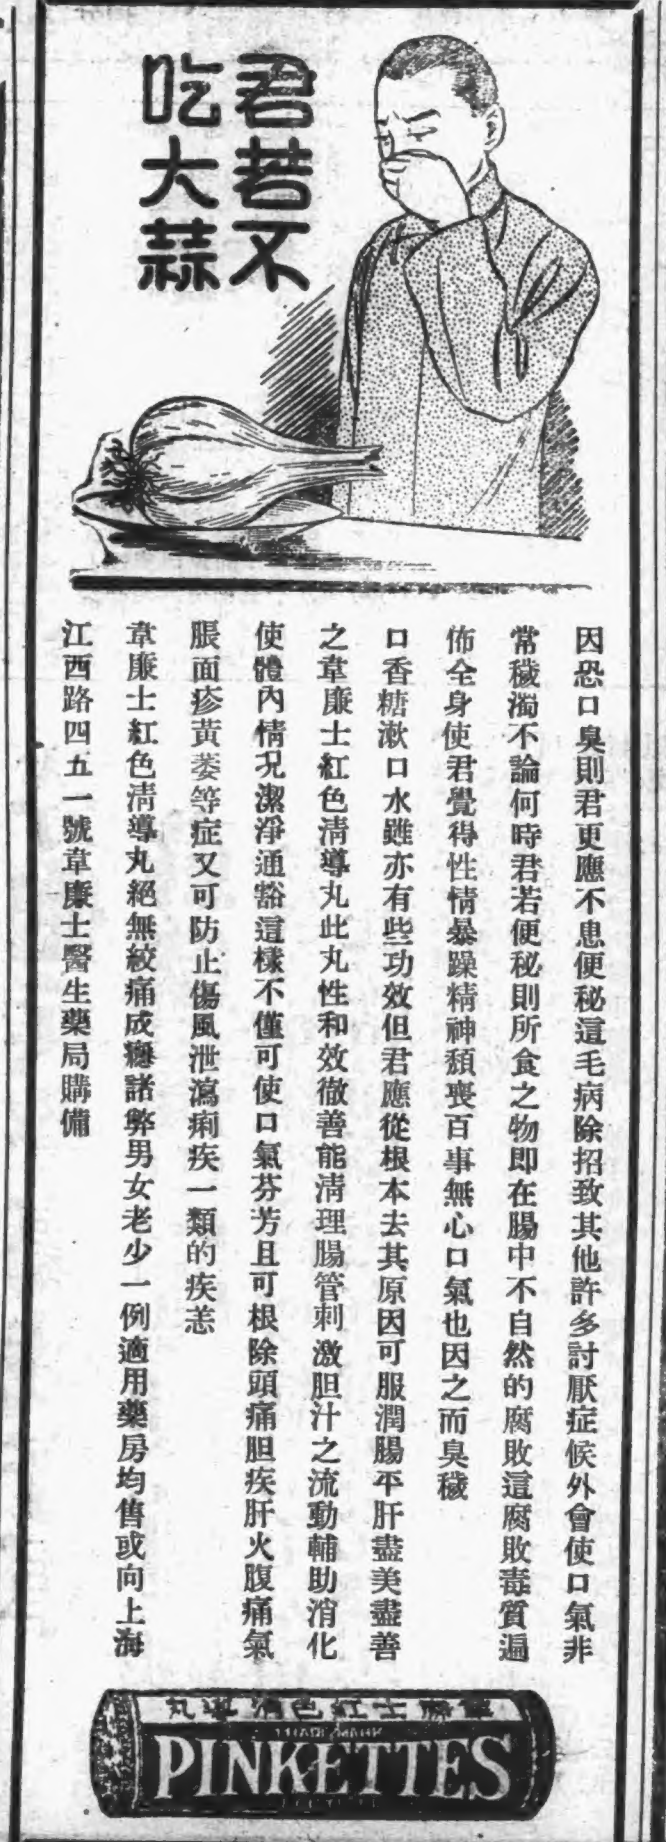 君若不
吃大蒜
因恐口臭則君更應不患便秘這毛病除招致其他許多討厭症候外會使口氣非
常穢濁不論何時君若便秘則所食之物即在腸中不自然的腐敗這腐敗毒質遍
佈全身使君覺得性情暴躁精神頹喪百事無心口氣也因之而臭穢
口香糖漱口水雖亦有些功效但君應從根本去其原因可服潤腸平肝盡美盡善
之韋廉士紅色清導丸此丸性和效徹善能清理腸管刺激胆汁之流動輔助消化
使體內情況潔淨通豁這樣不僅可使口氣芬芳且可根除頭痛胆疾肝火腹痛氣
脹面疹黃萎等症又可防止傷風泄瀉痢疾一類的疾恙
韋廉士紅色清導丸絕無絞痛成癮諸弊男女老少一例適用藥房均售或向上海
江西路四五一號韋廉士醫生藥局購備
丸導清色紅士廉韋
TRADE MARK
PINKETTES